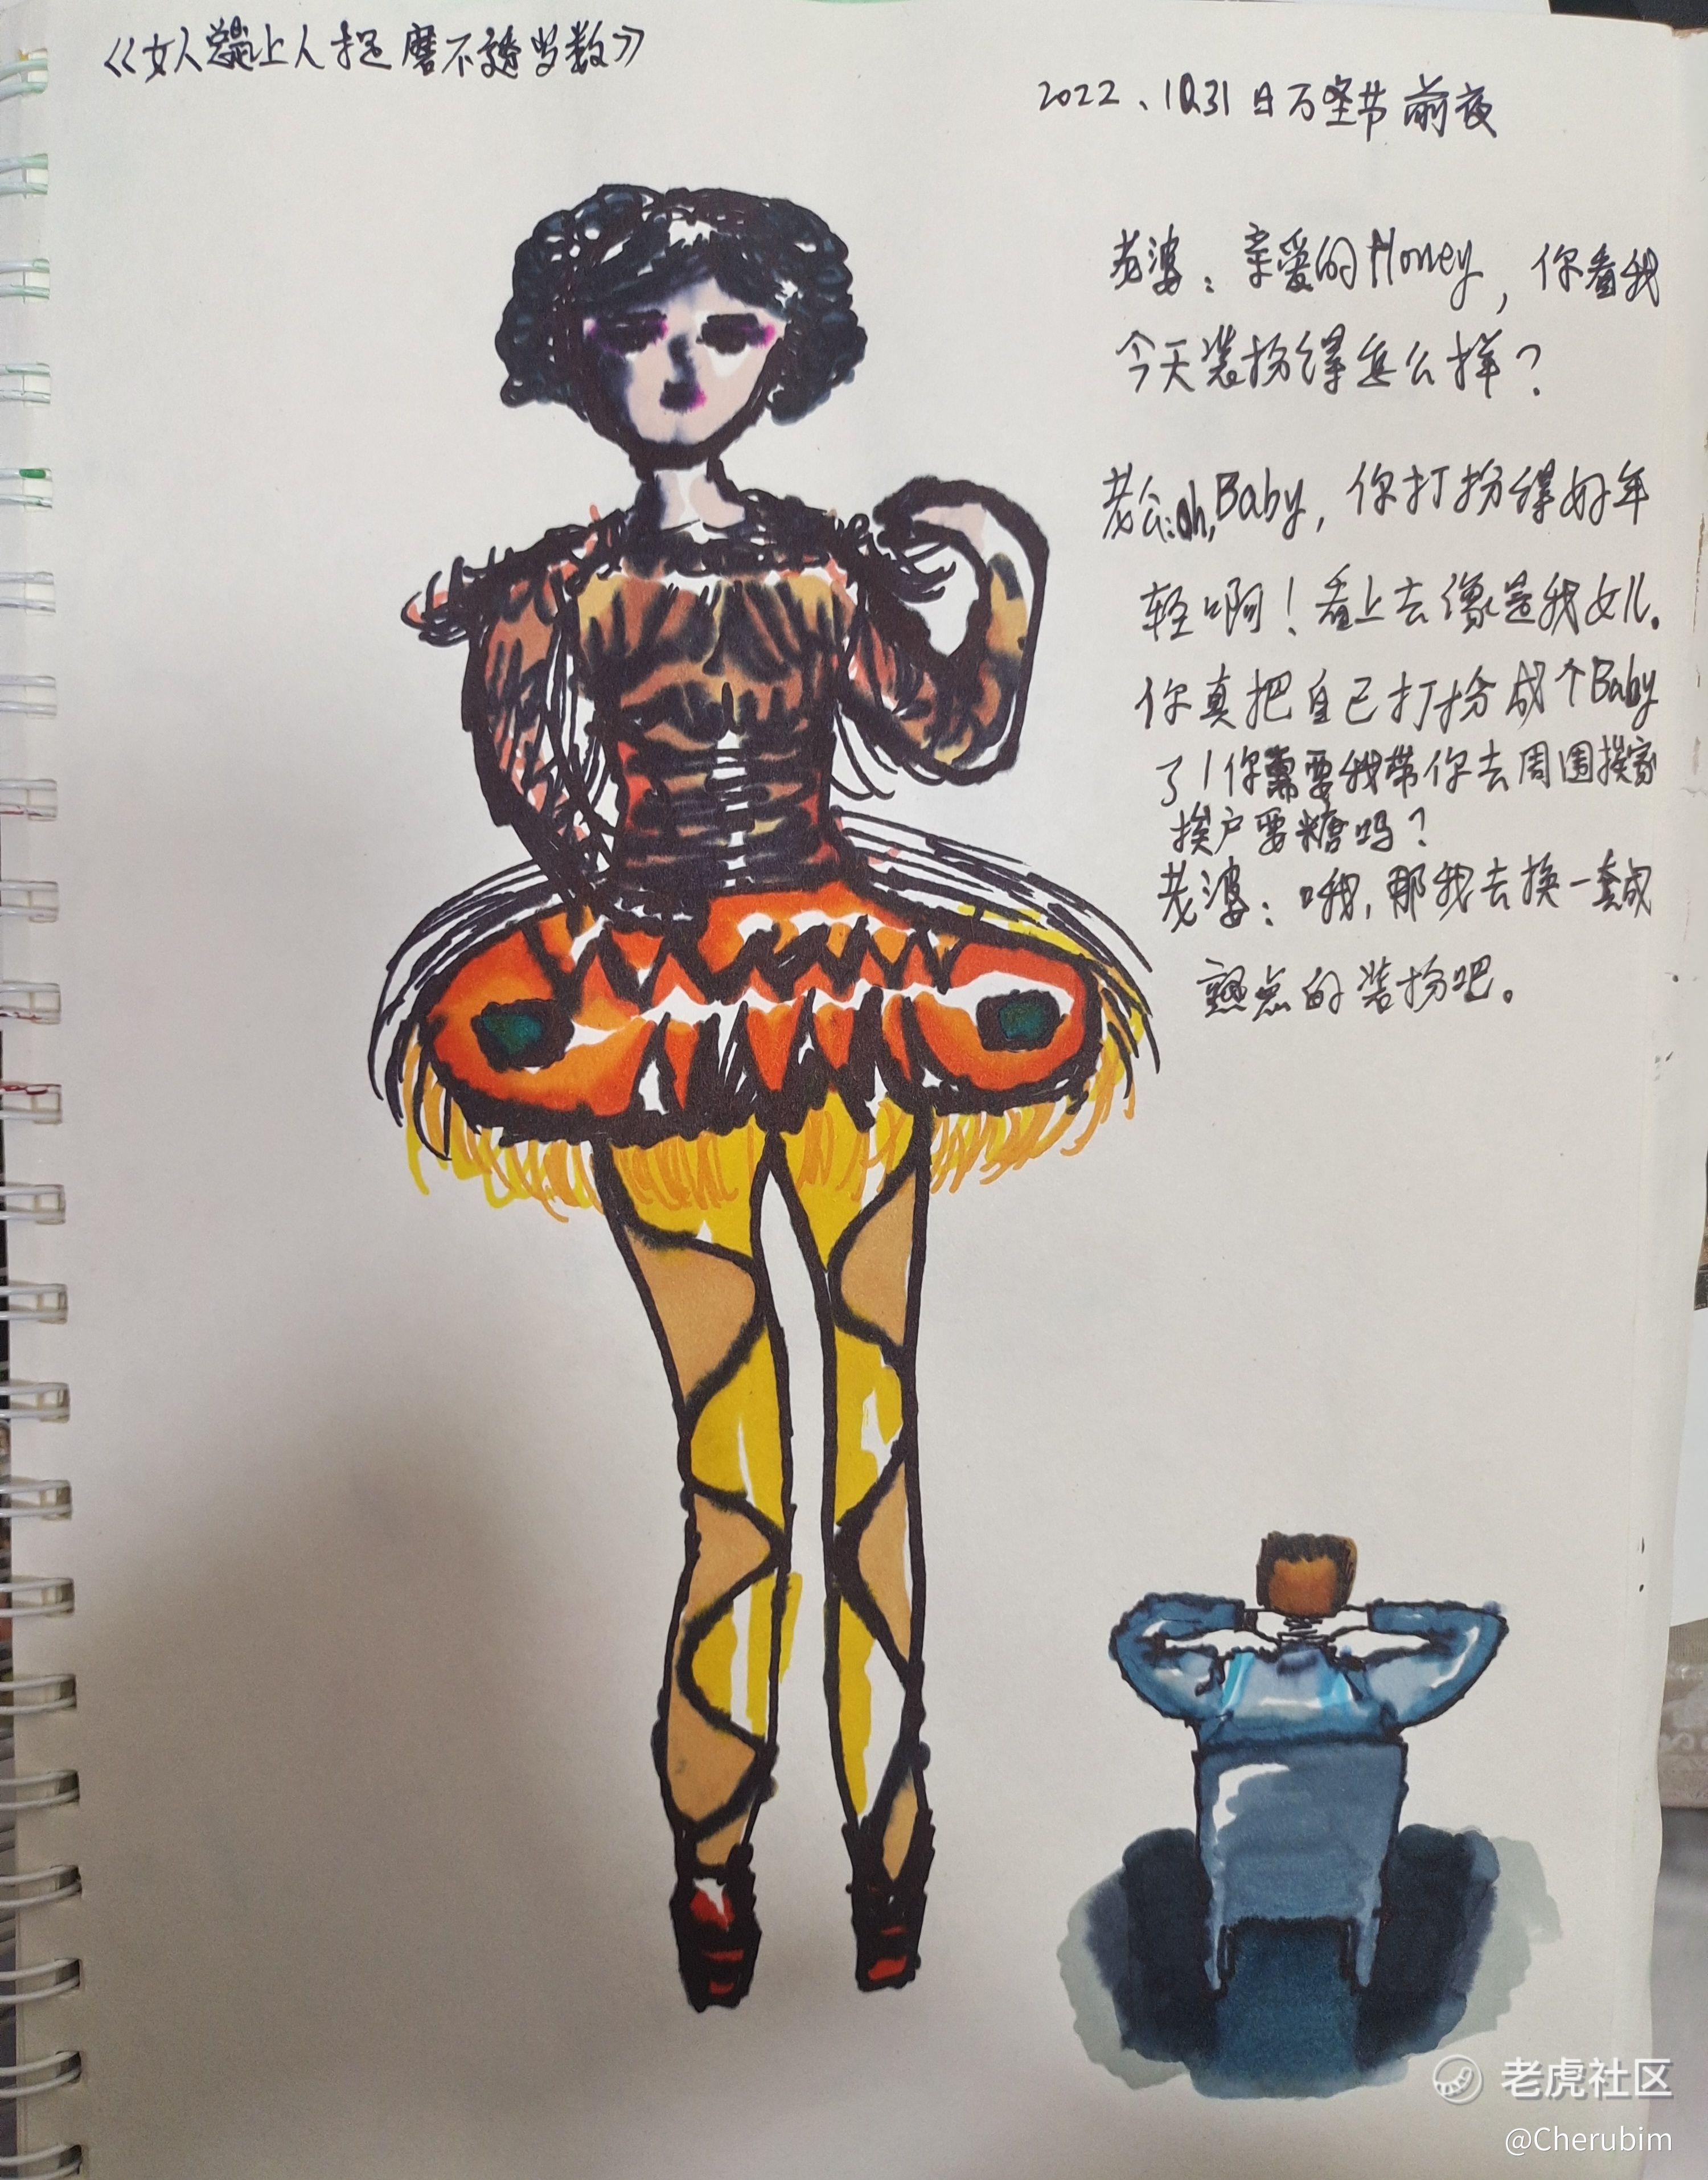 《女人总是让人捉磨不透岁数》
2022、10.31日万圣节前夜
老婆：亲爱的Honey，你看我
今天装扮得怎么样？
老公：oh,Baby，你打扮得好年
轻啊！看上去像是我女儿。
你真把自己打扮成个Baby
了！你需要我带你去周围挨家
挨户要糖吗？
老婆：哦，那我去换一套成
熟点的装扮吧。
老虎社区
@Cherubim